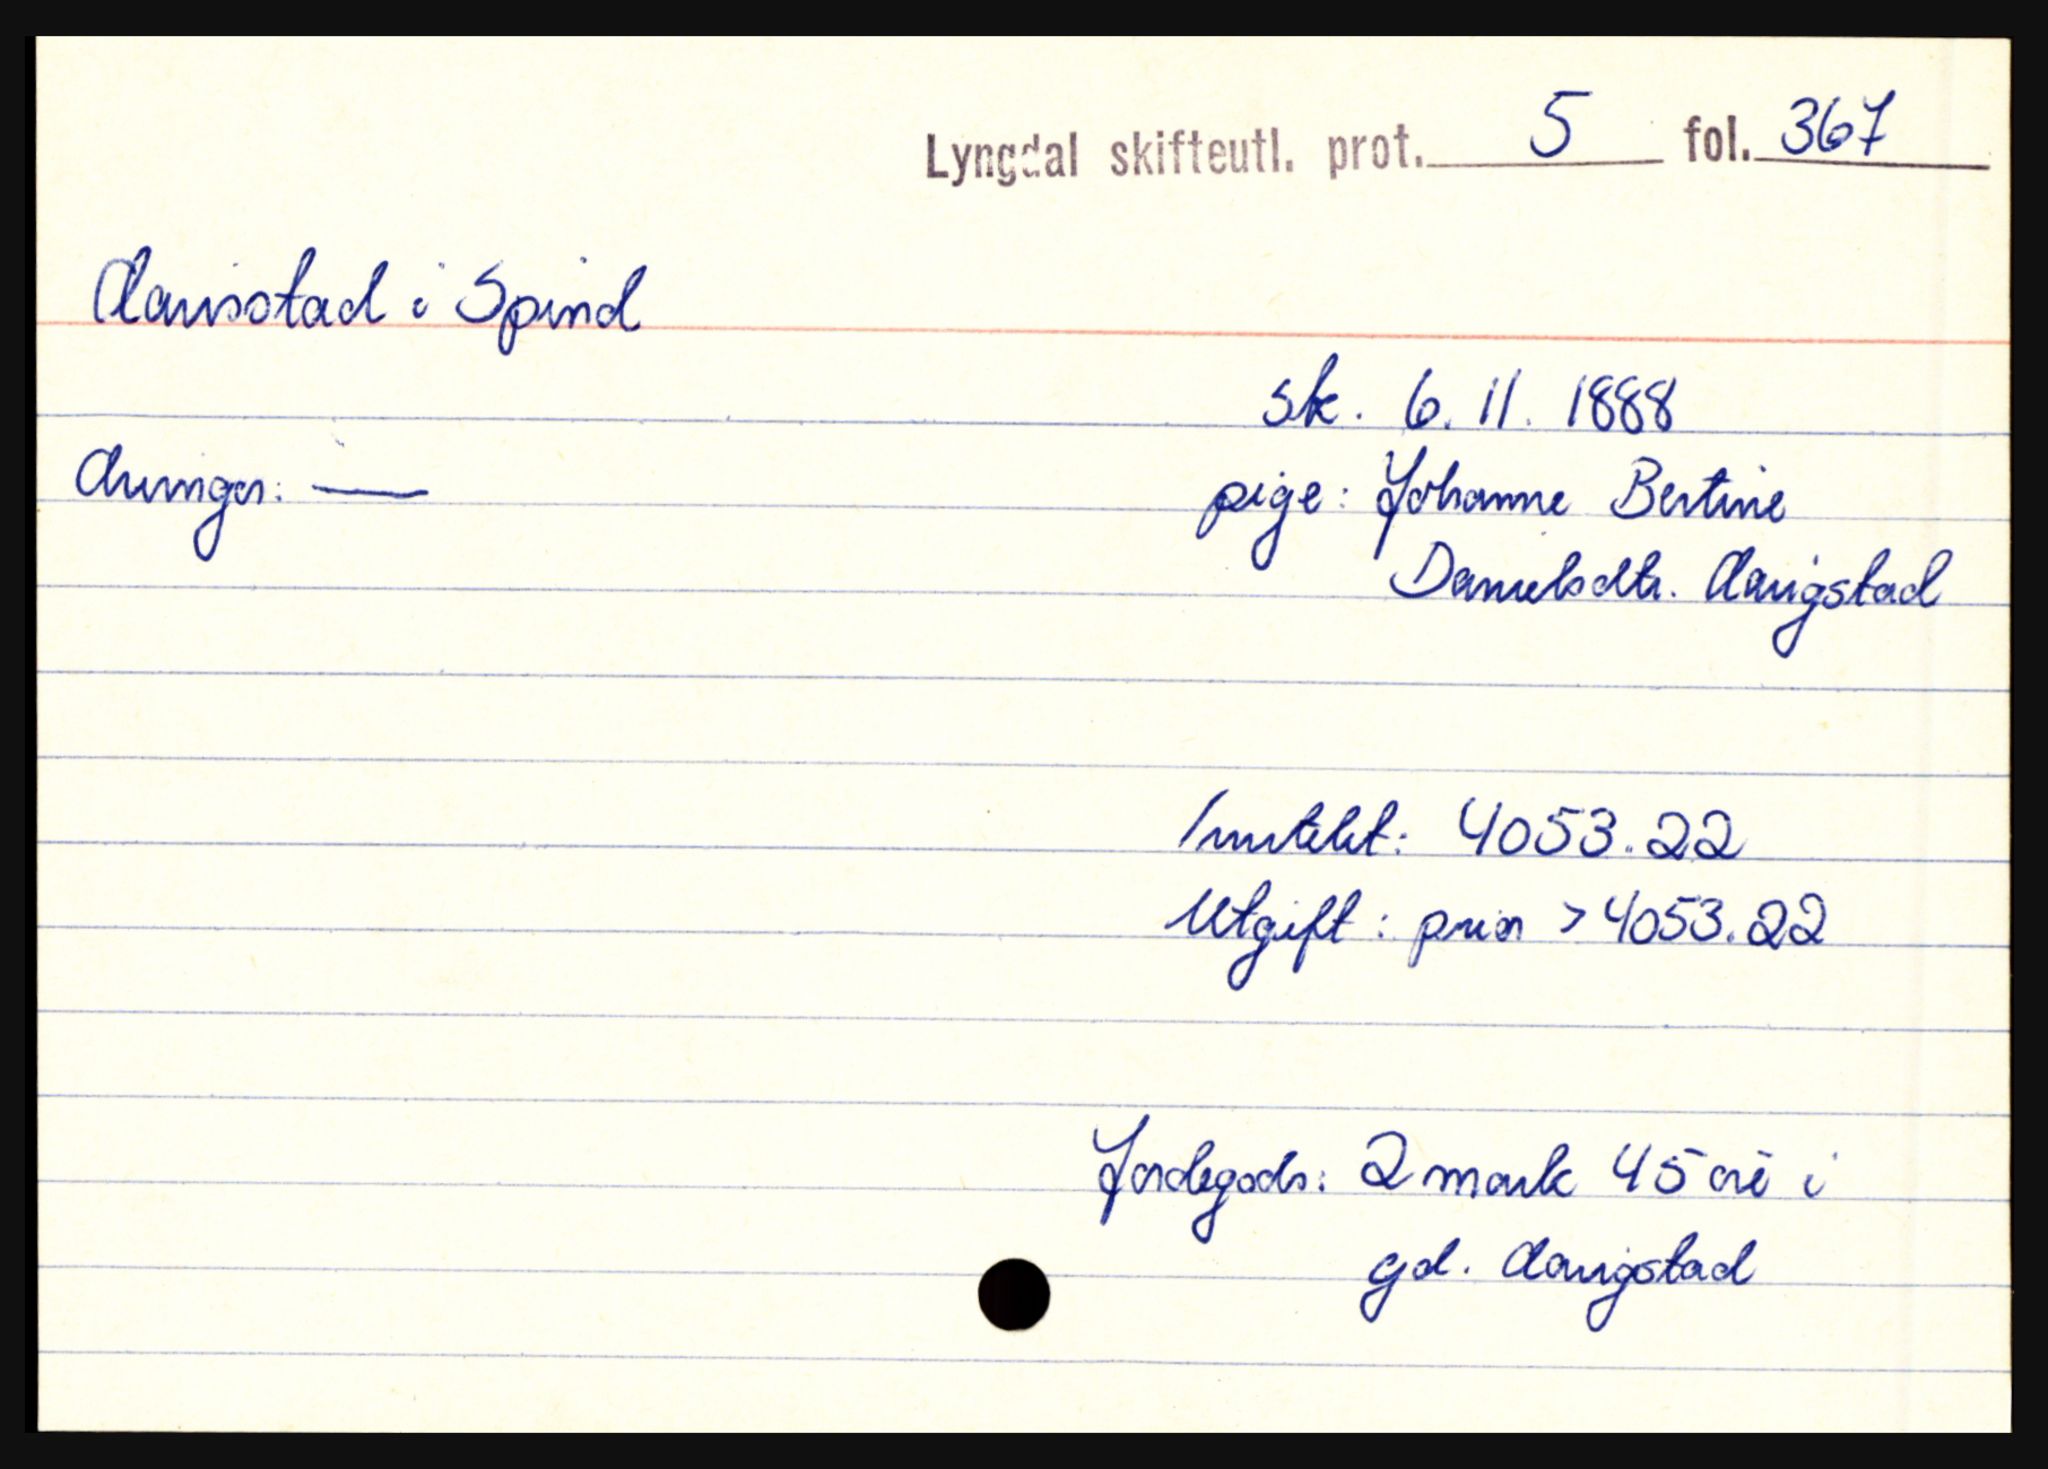 Lyngdal skifteutl. prot. 5 fol. 367
Aarisstad i Spind
sk. 6.11. 1888
Arvinger: —
pige: Johanne Bertine
Danielsdtr. Aarigstad
Inntekt: 4053.22
Utgift: prior > 4053.22
Jordegods: 2 mark 45 øre i
gd. Aarigstad